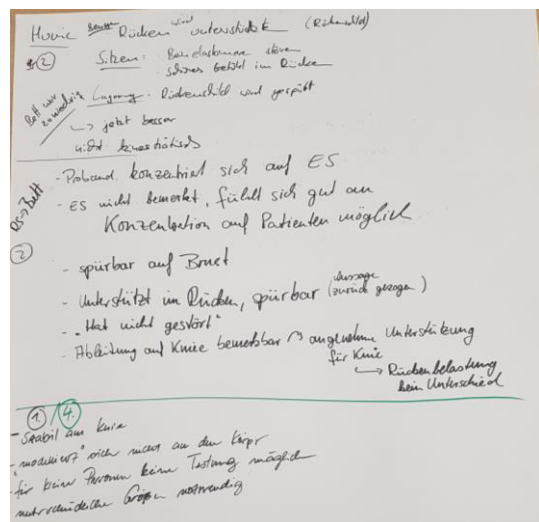 Rücken wird unterstützt (Rückenschild)
② Sitzen: stören
schönes Gefühl im Rücken
Bett war zu niedrig
Lagerung: Rückenschild wird gespürt
↳ jetzt besser
nicht kinästhetisch
RS → Bett
- Proband konzentriert sich auf ES
- ES nicht bemerkt, fühlt sich gut an
Konzentration auf Patienten möglich
②
- spürbar auf Brust
- Unterstützt im Rücken, spürbar (Aussage zurück gezogen)
- "Hat nicht gestört"
- Ableitung auf Knie bemerkbar angenehme Unterstützung
für Knie
↳ Rückenbelastung
kein Unterschied
①/④
- Stabil am Knie
- "modelliert" sich nicht an den Körper
- für keine Personen keine Testung möglich
unterschiedliche Größen notwendig